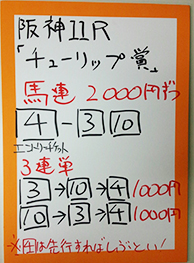 阪神11R
「チューリップ賞」
馬連 2000円ずつ
4-3 10
エントリーチケット
3連単
3→10→4 1000円
10→3→4 1000円
※4は先行すればしぶとい!